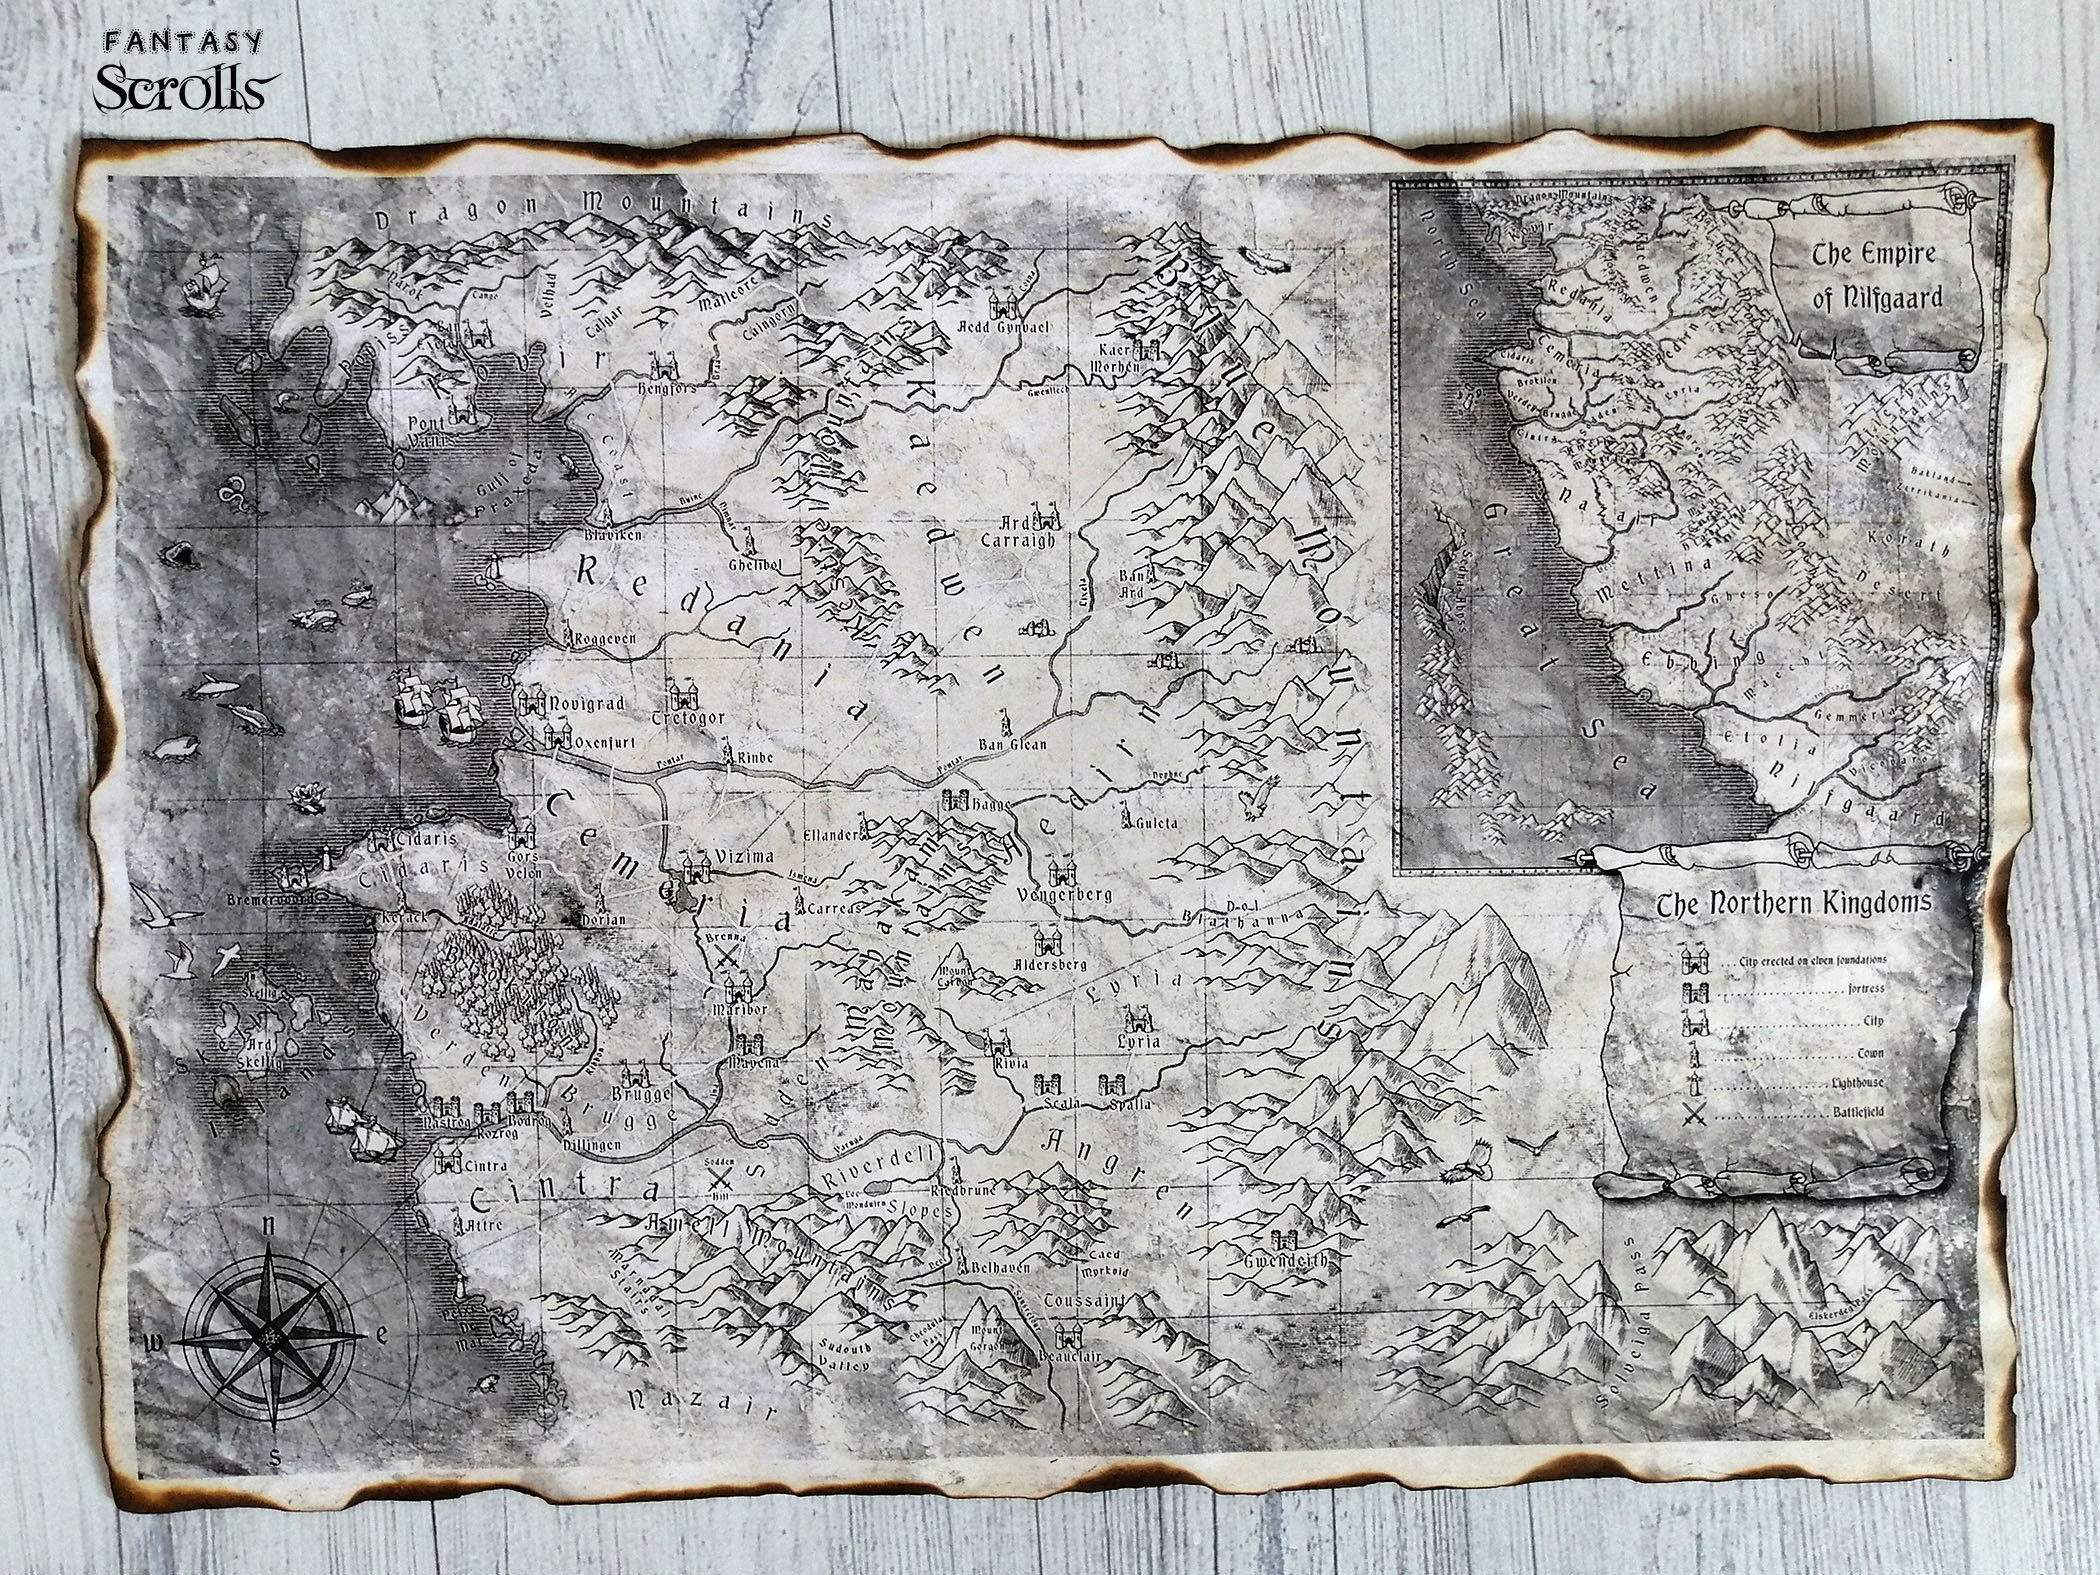 FANTASY
Scrolls
Dragon Mountains
Narok
Tango
Velhad
Talgar
Malleore
Caingorn
Aedd Gynvael
Poviss
Kovir
Hengfors
Kaer
Morhen
Gwenllech
Pont
Vanis
Coast
Gulf of
Praxeda
Buine
Blaviken
Ghelibol
Kaedwen
Ard
Carraigh
Ban
Ard
Lixela
Blue Mountains
Redania
Roggeven
Novigrad
Tretogor
Oxenfurt
Rinbe
Ban Glean
Pontar
Pontar
Dyphne
Hagge
Guleta
Aedirn
Cidaris
Cidaris
Gors
Velen
Temeria
Ellander
Vizima
Ismena
Vengerberg
Bremervoord
Kerack
Dorian
Carreas
Dol
Blathanna
Mahakam Mountains
Brenna
Aldersberg
Mount
Carbon
Lyria
Maribor
An
Skellig
Ard
Skellig
Skellige Islands
Verden
Mayena
Rivia
Lyria
Brugge
Brugge
Scala
Spalla
Nastrog
Rozrog
Bodrog
Dillingen
Sodden
Angren
Cintra
Cintra
Sodden
Hill
Yaruga
Riverdell
Riedbrune
Slopes
Attre
Amell Mountains
Marnadal
Stairs
Belhaven
Caed
Myrkvid
Gwendeith
Toussaint
Sansretour
Mount
Gorgon
Beauclair
Sudouth
Valley
Nazair
Solveiga Pass
Elskerdeg Pass
n
w
e
s
The Empire
of Nilfgaard
North Sea
Dragon Mountains
Kovir
Redania
Kaedwen
Temeria
Aedirn
Cidaris
Brokilon
Verden
Brugge
Lyria
Cintra
Nazair
Mettina
Gheso
Ebbing
Maecht
Gemmeria
Etolia
Nilfgaard
Vicovaro
Great Sea
Hakland
Zerrikania
Korath
Desert
The Northern Kingdoms
City erected on elven foundations
fortress
City
Town
Lighthouse
Battlefield